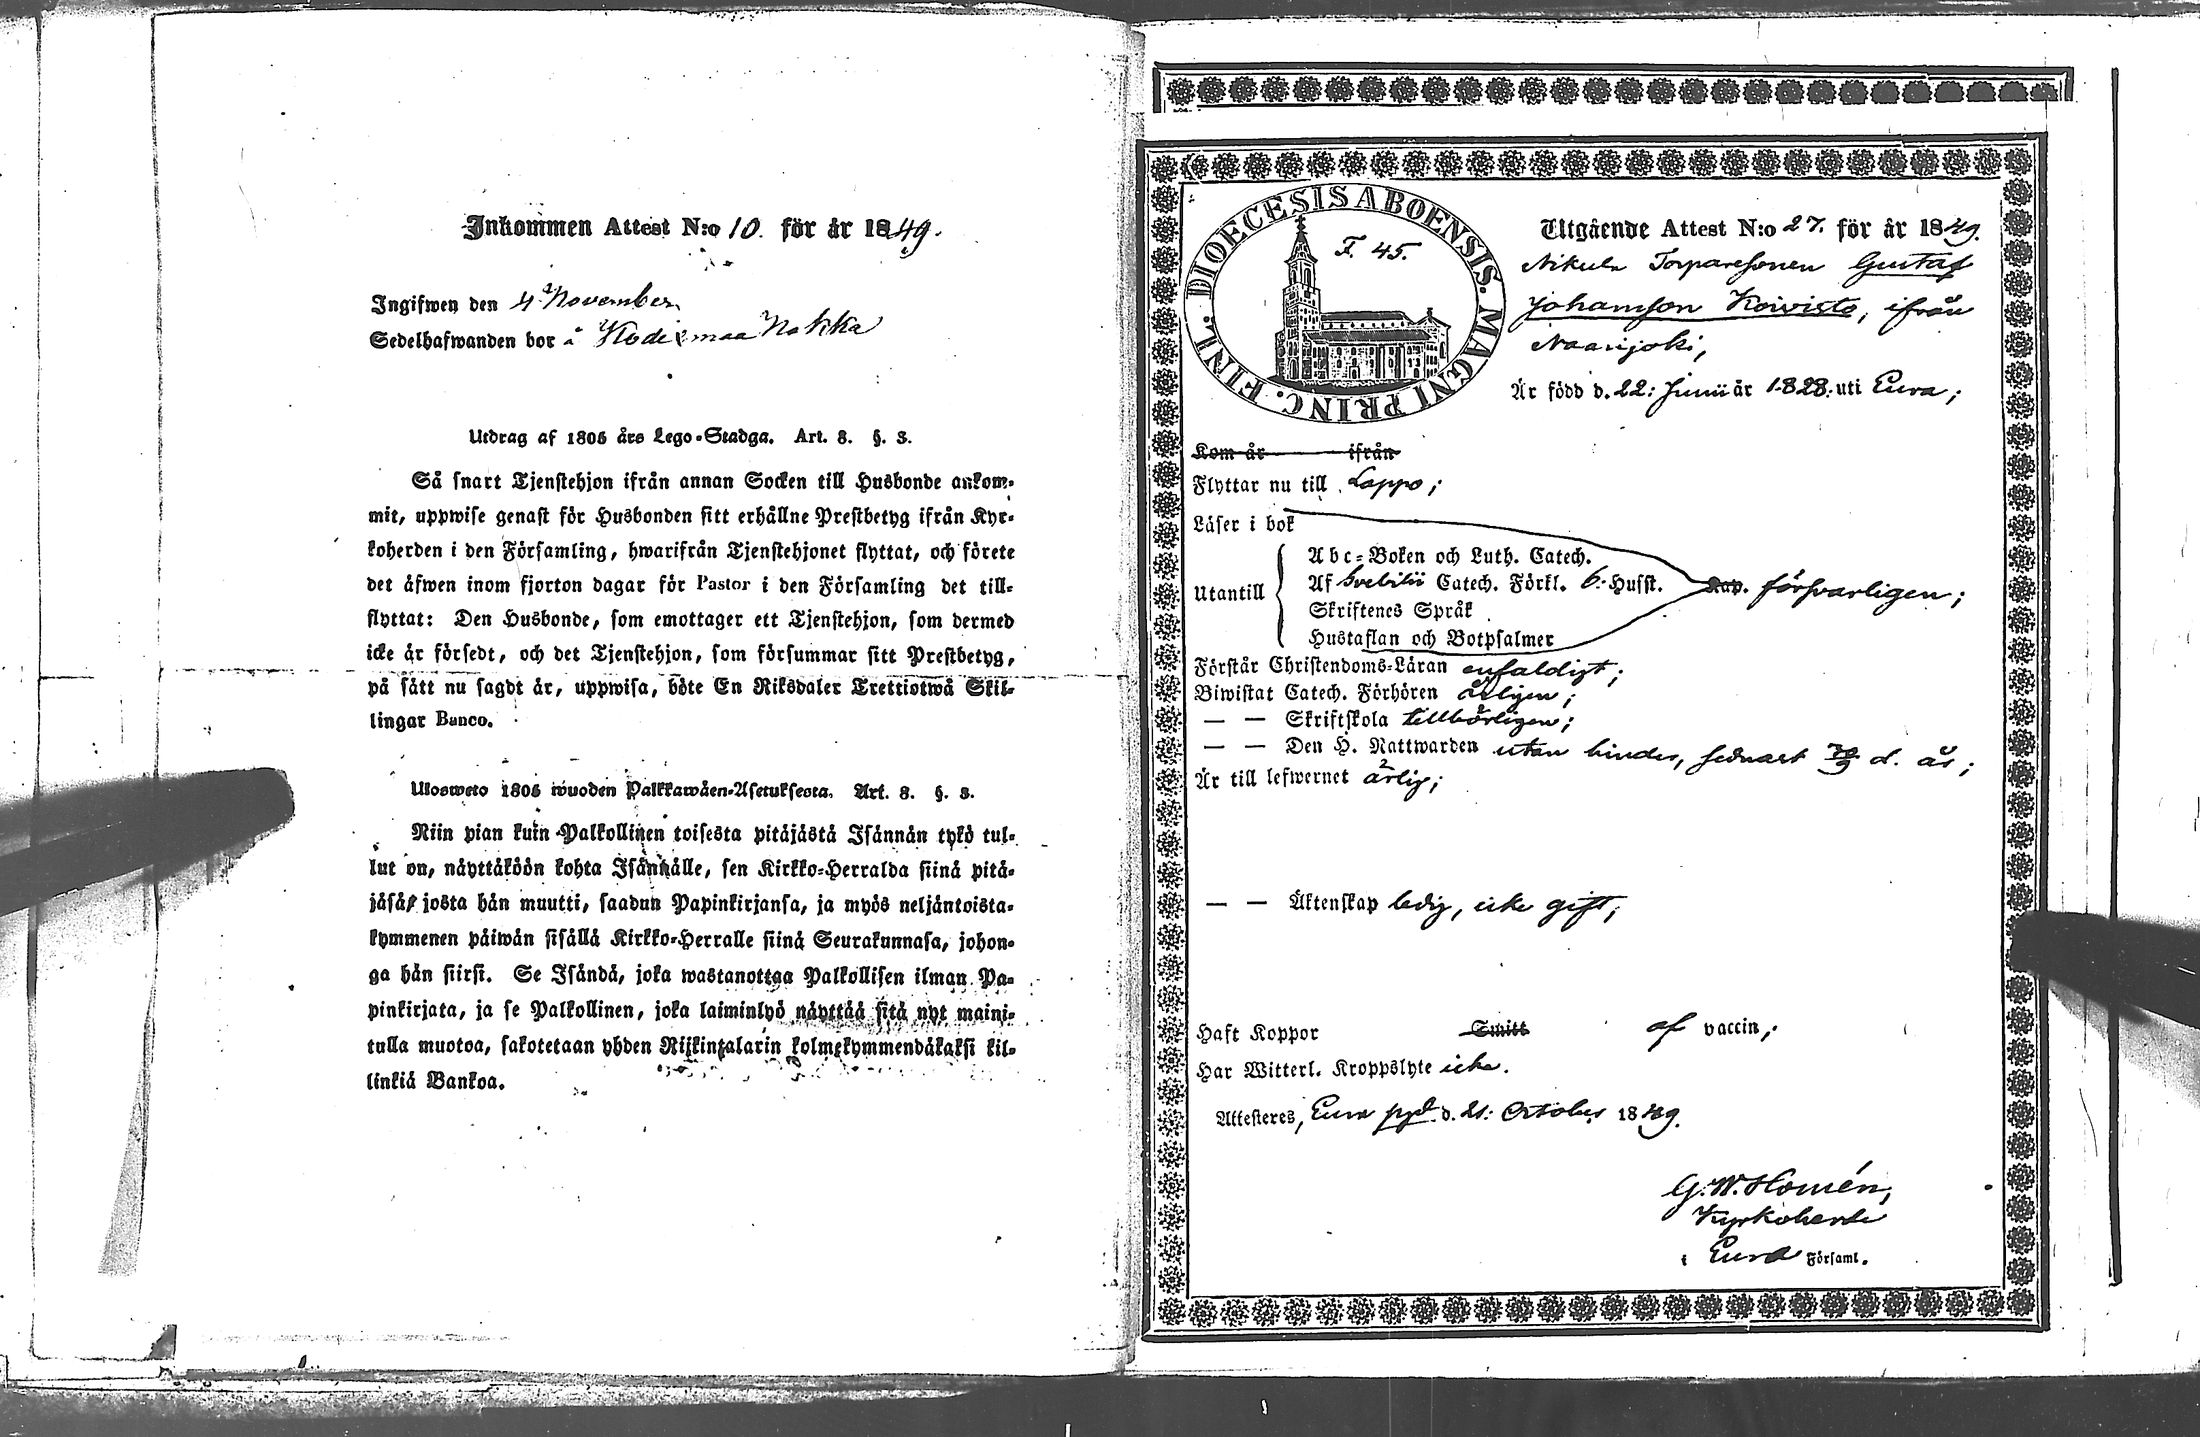 Inkommen Attest N:o 10. för år 1849.
Ingifwen den 4 November
Sedelhafwanden bor å Kodiximaa Nokka
Utdrag af 1805 års Lego-Stadga. Art. 8. §. 3.
Så snart Tjenstehjon ifrån annan Socken till Husbonde ankom-
mit, uppwise genast för Husbonden sitt erhållne Prestbetyg ifrån Kyr-
koherden i den Församling, hwarifrån Tjenstehjonet flyttat, och förete
det äfwen inom fjorton dagar för Pastor i den Församling det till-
flyttat: Den Husbonde, som emottager ett Tjenstehjon, som dermed
icke är försedt, och det Tjenstehjon, som försummar sitt Prestbetyg,
på sätt nu sagdt är, uppwisa, böte En Riksdaler Trettiotwå Skil-
lingar Banco.
Ulosweto 1805 wuoden Palkkawäen-Asetuksesta. Art. 8. §. 3.
Niin pian kuin Palkollinen toisesta pitäjästä Isännän tykö tul-
lut on, näyttäköön kohta Isännälle, sen Kirkko-Herralda siinä pitä-
jäsä, josta hän muutti, saadun Papinkirjansa, ja myös neljäntoista-
kymmenen päiwän sisällä Kirkko-Herralle siinä Seurakunnasa, johon-
ga hän siirsi. Se Isändä, joka wastanottaa Palkollisen ilman Pa-
pinkirjata, ja se Palkollinen, joka laiminlyö näyttää sitä nyt maini-
tulla muotoa, sakotetaan yhden Riikintalarin kolmekymmendäkaksi kil-
linkiä Bankoa.
DIOECESIS ABOENSIS. MAGNI PRINC. FINL.
F. 45.
Utgående Attest N:o 27. för år 1849.
Nikula Torparesonen Gustaf
Johansson Koivisto, ifrån
Naarijoki,
Är född d. 22: Junii år 1828: uti Eura;
Kom år ifrån
Flyttar nu till Lappo;
Läser i bok
Utantill
Abc-Boken och Luth. Catech.
Af Svebilii Catech. Förkl. 6. Husst. Kap. försvarligen;
Skriftenes Språk
Hustaflan och Botpsalmer
Förstår Christendoms-Läran enfaldigt;
Biwistat Catech. Förhören årligen;
— — Skriftskola tillbörligen;
— — Den H. Nattwarden utan hinder, sednast d. år;
Är till lefwernet ärlig;
— — Äktenskap ledig, icke gift;
Haft Koppor Smitt af vaccin;
Har Witterl. Kroppslyte icke.
Attesteres, Eura pgd d. 21: October 1849.
G. W. Homén,
Kyrkoherde
i Eura Församl.